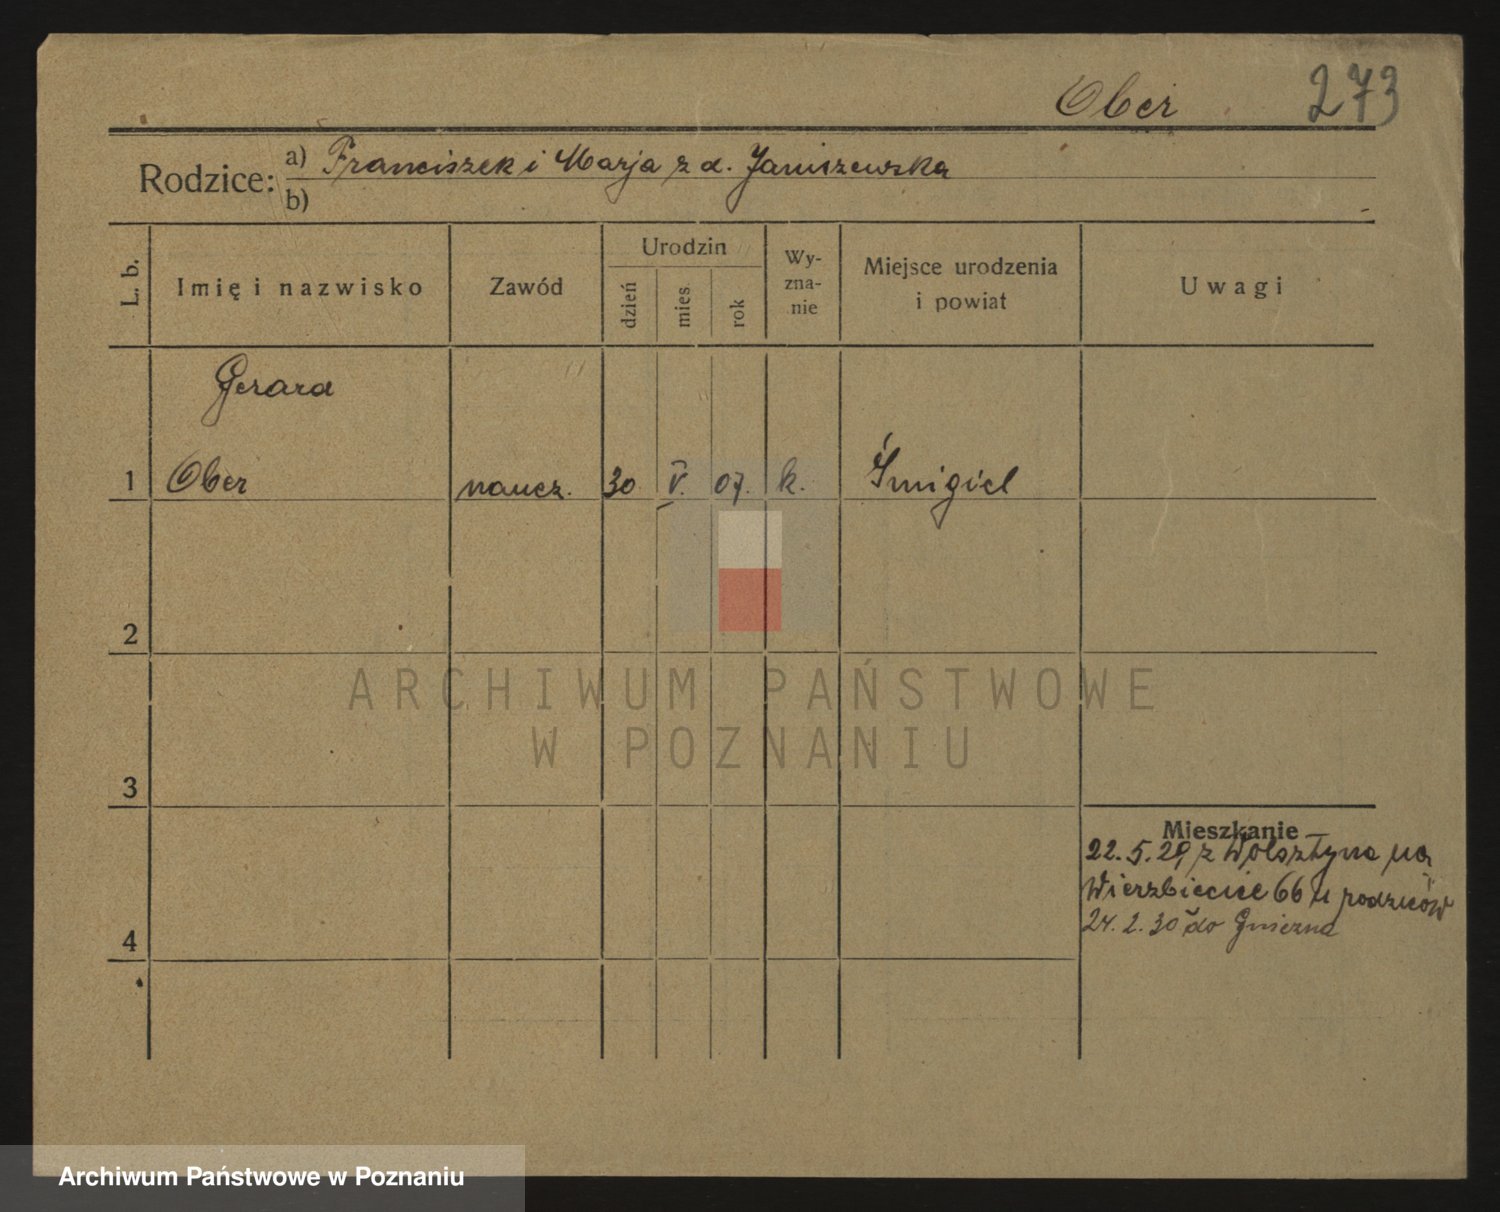 Ober 273
Rodzice: a) Franciszek i Marja z d. Janiszewska
b)
L. b. Imię i nazwisko Zawód Urodzin dzień mies rok Wy-zna-nie Miejsce urodzenia i powiat Uwagi
Gerard
1 Ober naucz. 30 V. 07. k. Śmigiel
2
ARCHIWUM PAŃSTWOWE
W POZNANIU
3
Mieszkanie
22.5.29 z Wolsztyna na
Wierzbięcice 66 u rodziców
4
24.2.30 do Gniezna
Archiwum Państwowe w Poznaniu